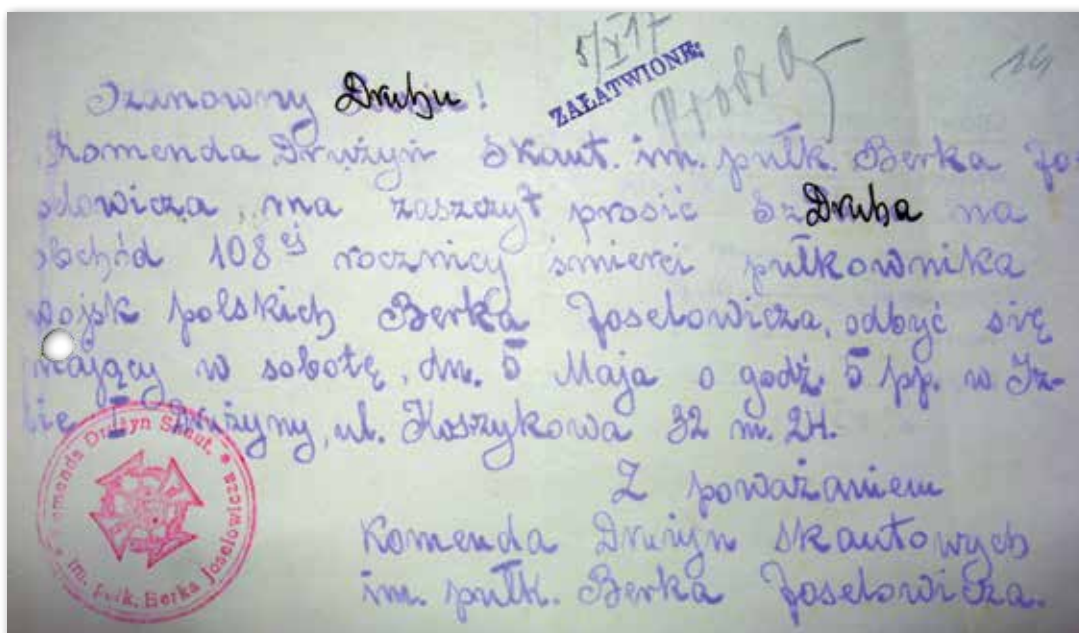 5/X 17
ZAŁATWIONE
14
Szanowny Druhu!
Komenda Drużyn Skaut. im. pułk. Berka Jo-
selowicza, ma zaszczyt prosić Sz Druha na
obchód 108ej rocznicy śmierci pułkownika
wojsk polskich Berka Joselowicza, odbyć się
mający w sobotę, dn. 5 Maja o godź. 5 pp. w Iz-
bie I Drużyny, ul. Koszykowa 32 m. 24.
Z poważaniem
Komenda Drużyn Skautowych
im. pułk. Berka Joselowicza.
Komenda Drużyn Skaut. * im. pułk. Berka Joselowicza *